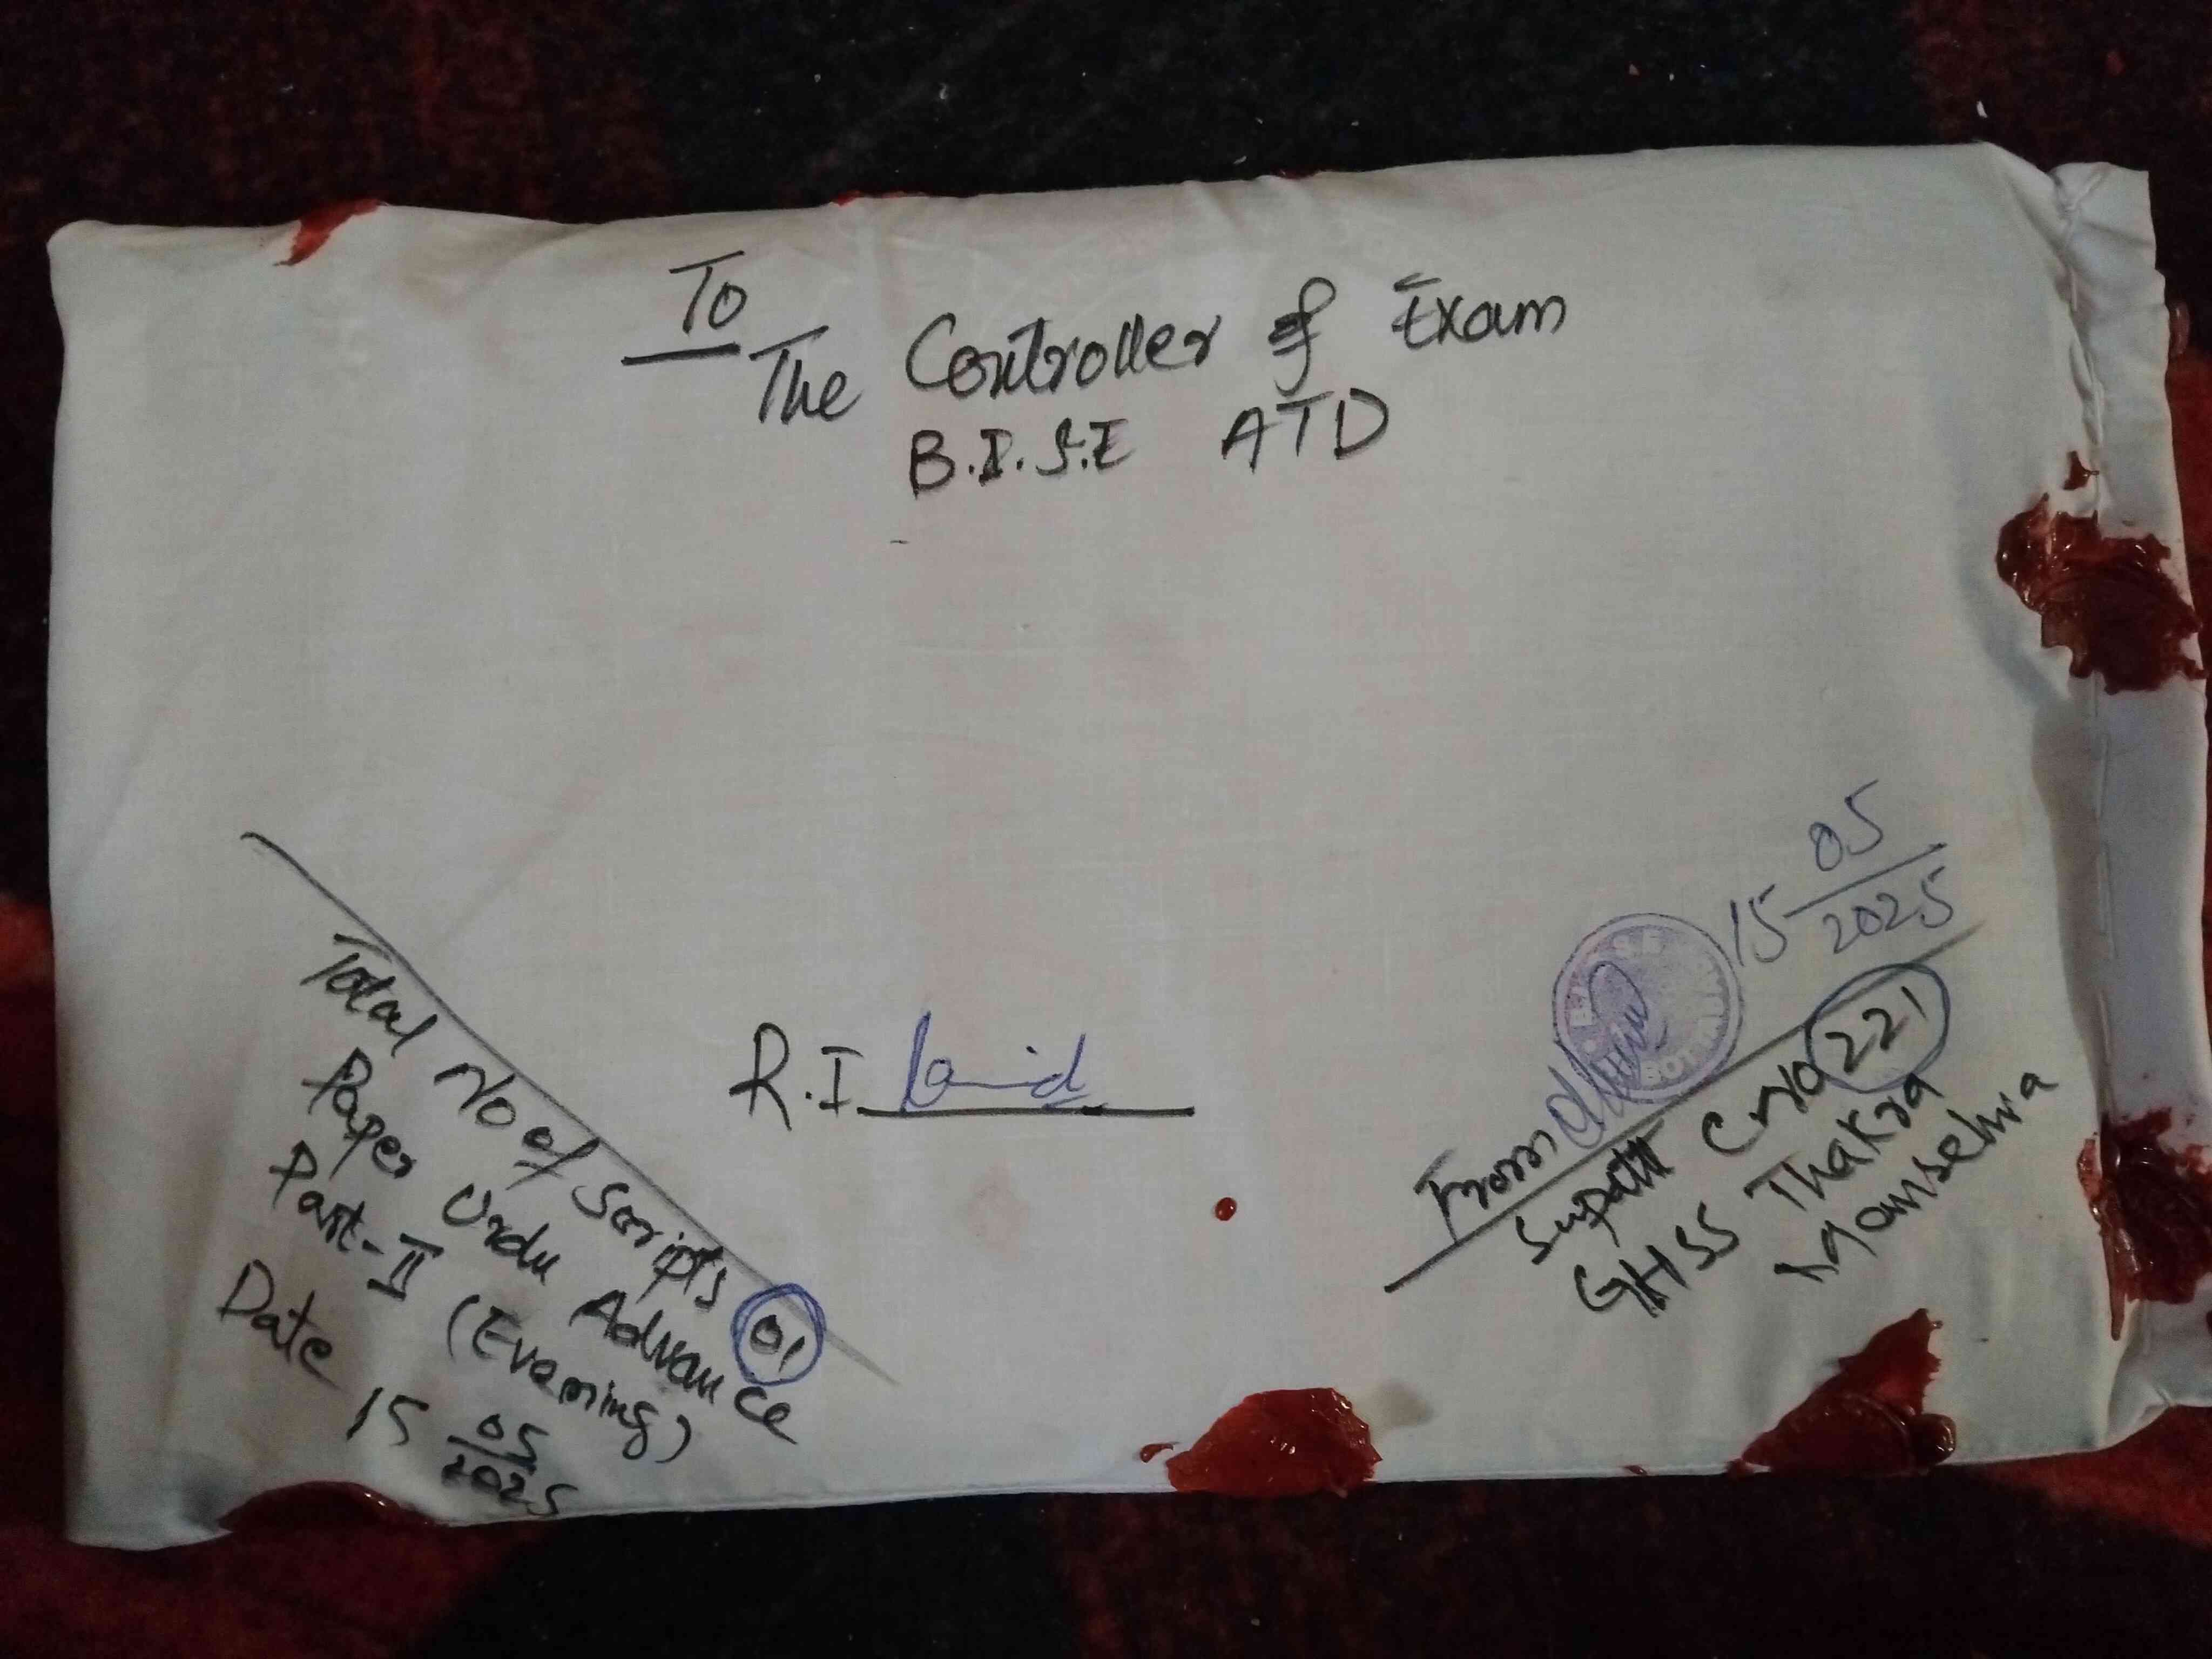 To
The Controller of Exam
B.I.S.E ATD
Total No of Scripts 01
Paper Urdu Advance
Part-II (Evening)
Date 15 05
2025
R.I
15 05
2025
From
Supdtt C.No 221
GHSS Thakra
Mansehra